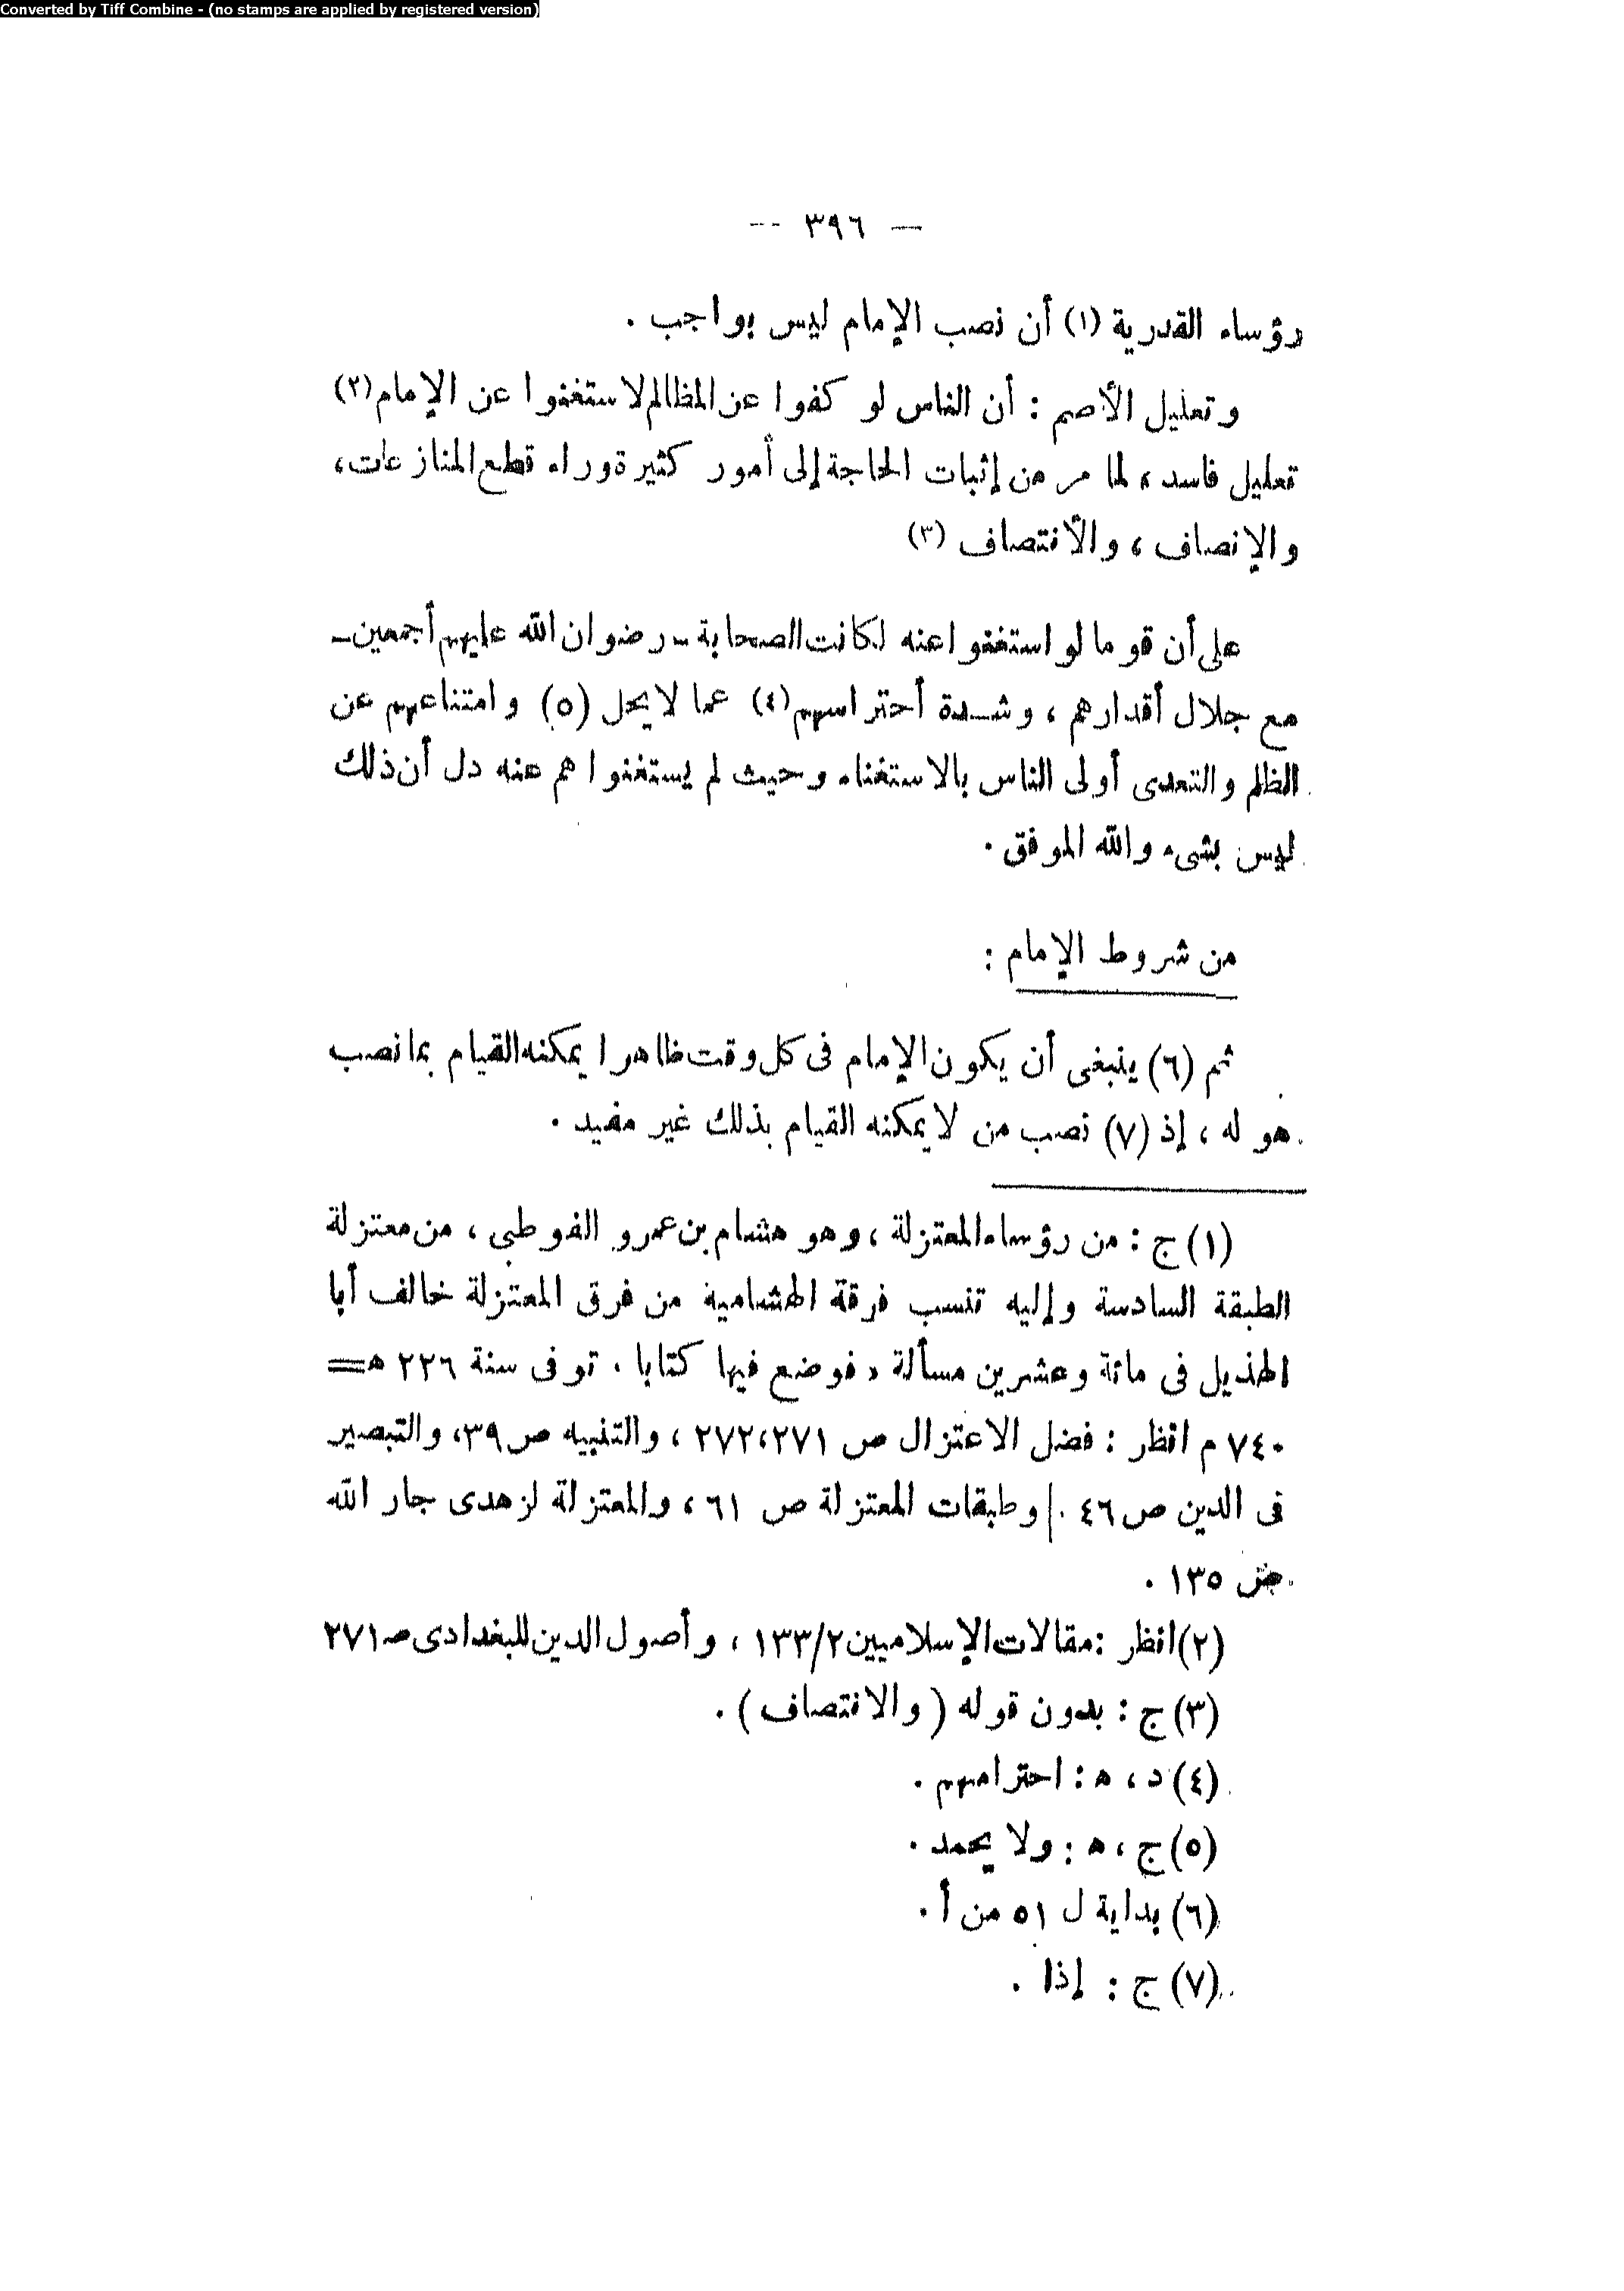 Converted by Tiff Combine - (no stamps are applied by registered version)
— ٣٩٦ --
رؤساء القدرية (١) أن نصب الإمام ليس بواجب .
وتعليل الأصم : أن الناس لو كفوا عن المظالم لاستغنوا عن الإمام (٢)
تعليل فاسد ، لما مر من إثبات الحاجة إلى أمور كثيرة وراء قطع المنازعات ،
والإنصاف ، والأنتصاف (٣)
على أن قوما لو استغنوا عنه لكانت الصحابة - رضوان الله عليهم أجمعين -
مع جلال أقدارهم ، وشدة أحتراسهم (٤) عما لا يحل (٥) وامتناعهم عن
الظلم والتعدى أولى الناس بالاستغناء وحيث لم يستغنوا هم عنه دل أن ذلك
ليس بشىء والله الموفق .
من شروط الإمام :
ثم (٦) ينبغى أن يكون الإمام فى كل وقت ظاهرا يمكنه القيام بما نصب
هو له ، إذ (٧) نصب من لا يمكنه القيام بذلك غير مفيد .
(١) ج : من رؤساء المعتزلة ، وهو هشام بن عمرو الفوطى ، من معتزلة
الطبقة السادسة وإليه تنسب فرقة الهشامية من فرق المعتزلة خالف أبا
الهذيل فى مائة وعشرين مسألة ، فوضع فيها كتابا . توفى سنة ٢٢٦ ه =
٧٤٠ م انظر : فضل الاعتزال ص ٢٧١،٢٧٢ ، والتنبيه ص ٣٩، والتبصير
فى الدين ص ٤٦ . وطبقات المعتزلة ص ٦١ ، والمعتزلة لزهدى جار الله
ص ١٣٥ .
(٢) انظر : مقالات الإسلاميين ١٣٣/٢ ، وأصول الدين للبغدادى صـ ٢٧١
(٣) ج : بدون قوله ( والانتصاف ) .
(٤) د ، ه : احترامهم .
(٥) ج ، ه : ولا يحمد .
(٦) بداية ل ٥١ من أ .
(٧) ج : إذا .